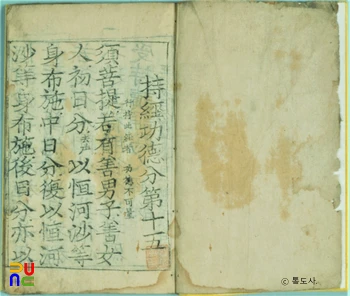 持經功德分第十五
須菩提若有善男子善女
人初日分以恒河沙等
身布施中日分復以恒河
沙等身布施後日分亦以
© 통도사.